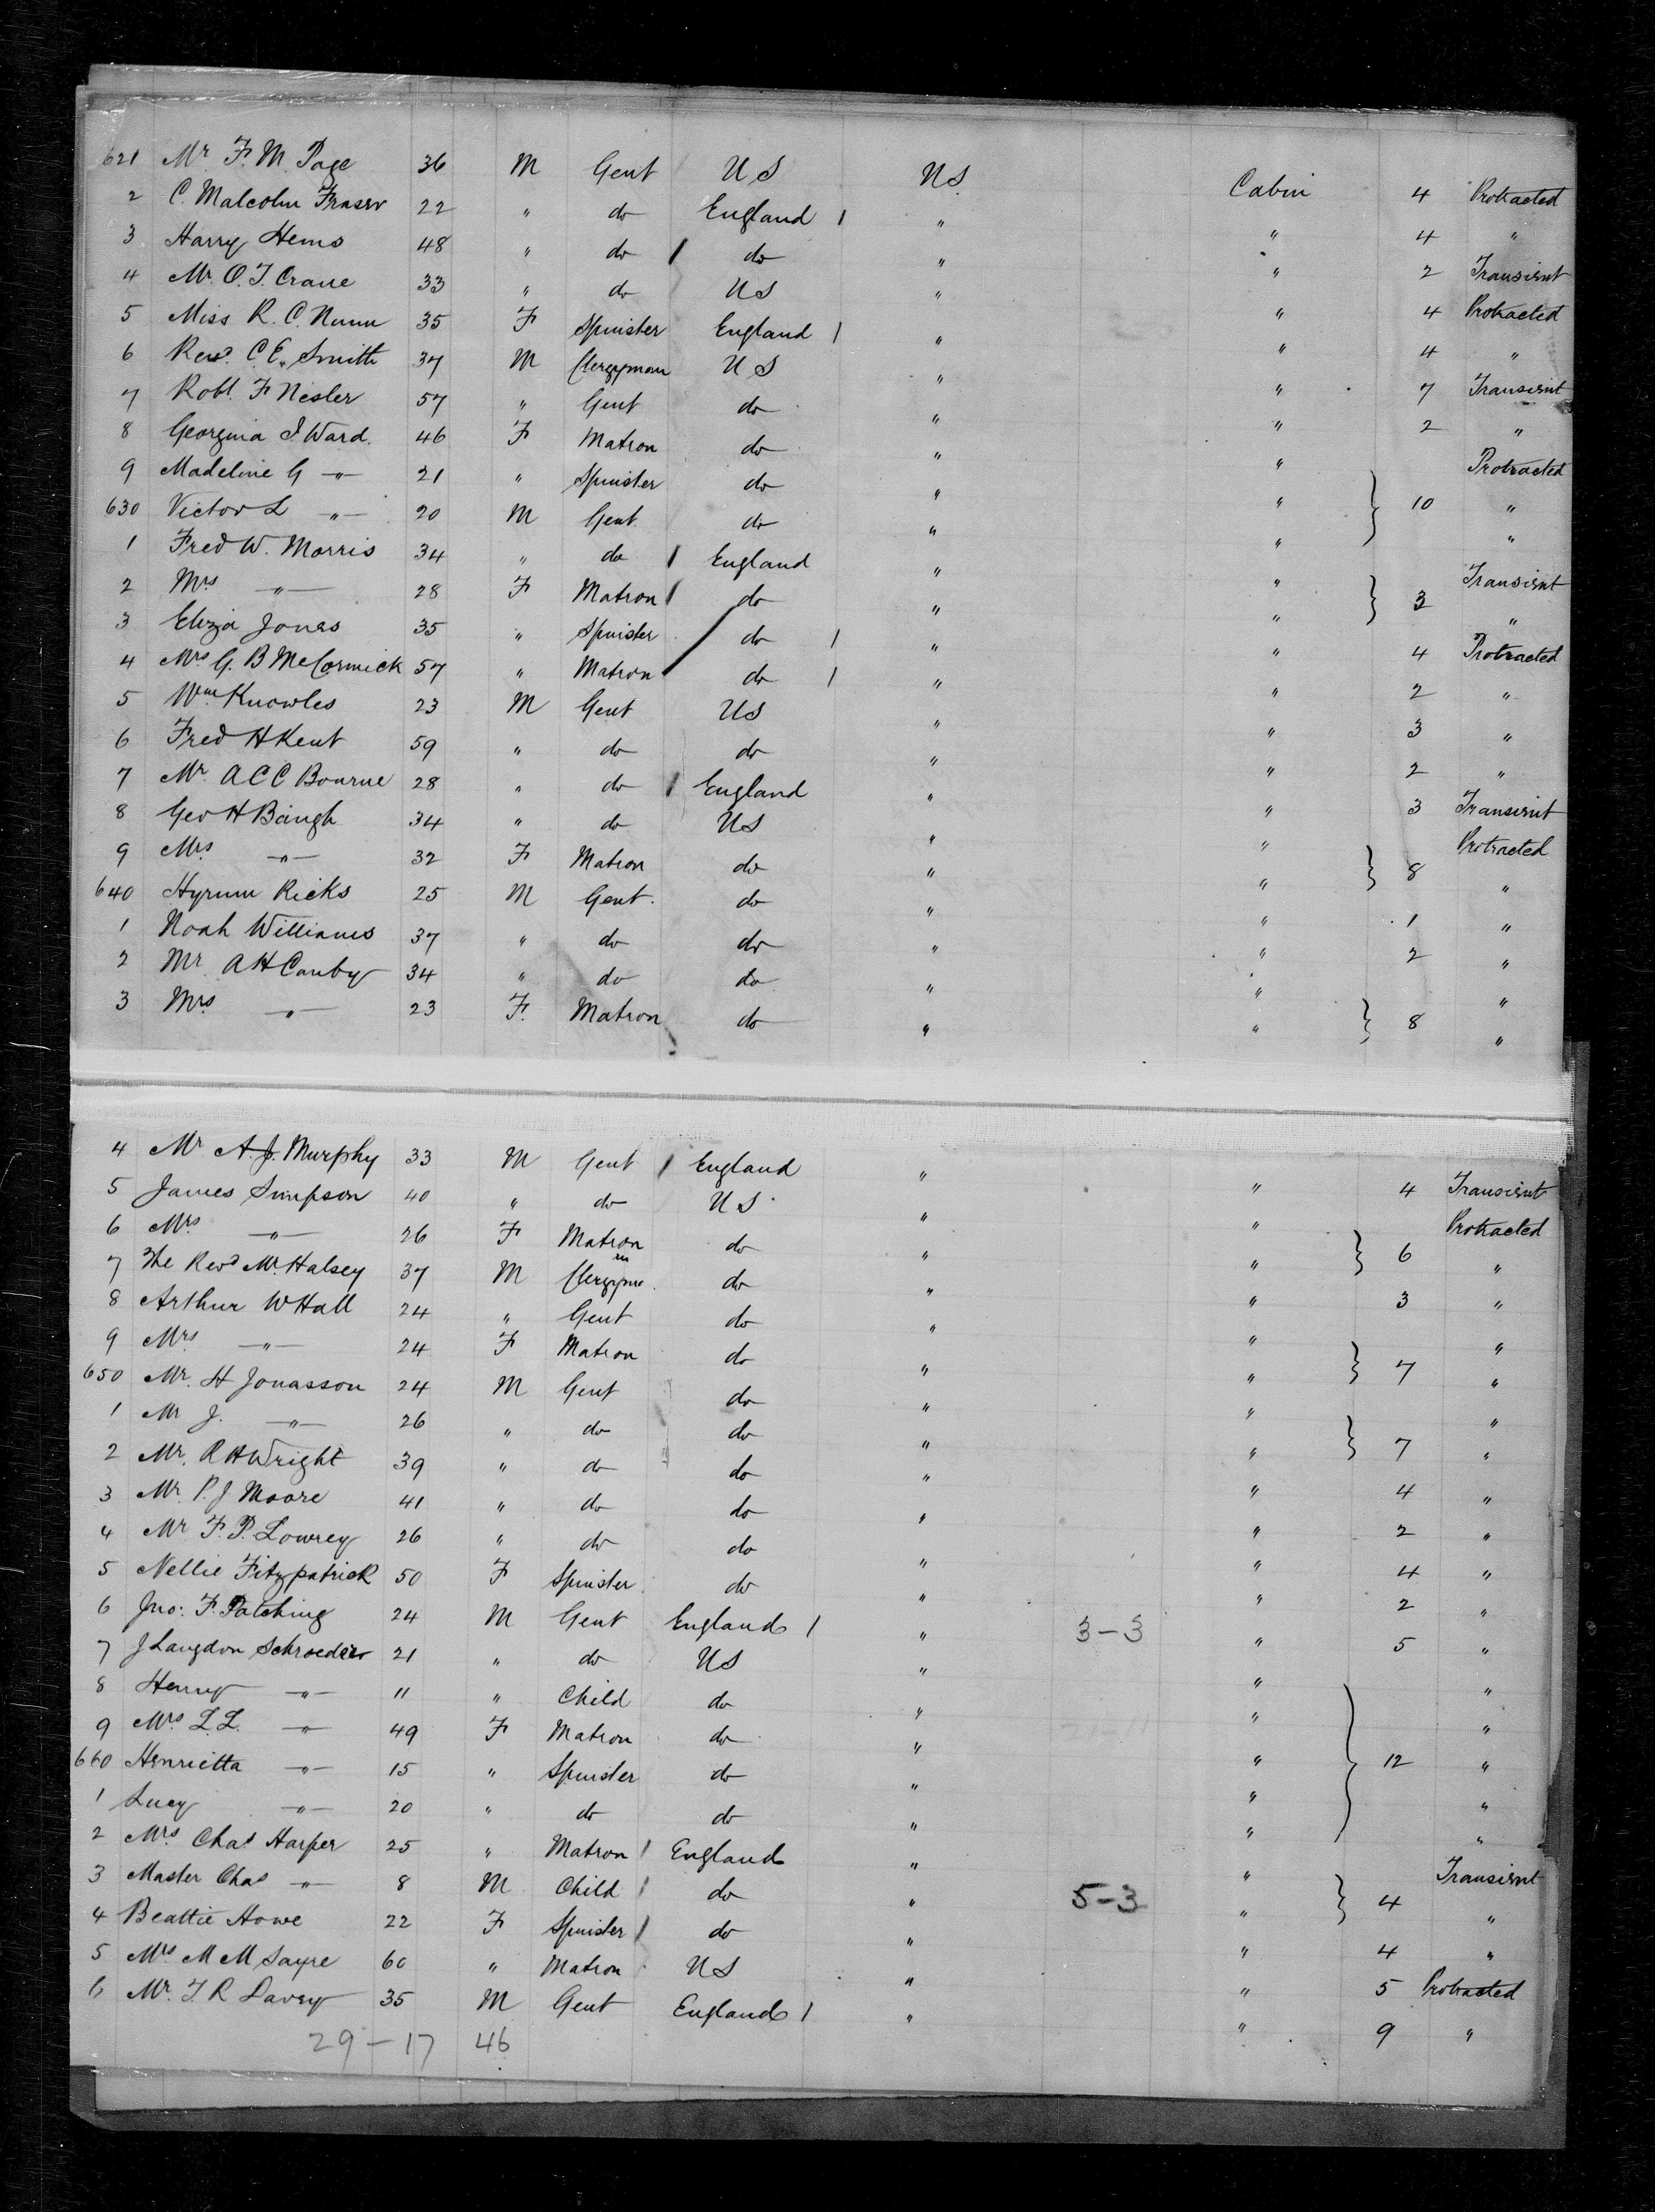 621 Mr F. M. Page 36 M Gent U S U S. Cabin 4 Protracted
2 C. Malcolm Fraser 22 " do England 1 " " 4 "
3 Harry Hems 48 " do 1 do " " 2 Transient
4 Mr. O. T. Crane 33 " do U S " " 4 Protracted
5 Miss R. C. Nunn 35 F Spinister England 1 " " 4 "
6 Revd. C E. Smith 37 M Clergyman U S " " 7 Transient
7 Robt. F Nesler 57 " Gent do " " 2 "
8 Georgina I Ward. 46 F Matron do " " Protracted
9 Madeline G -"- 21 " Spinister do " " } 10 "
630 Victor L -"- 20 M Gent. do " " "
1 Fred W. Morris 34 " do 1 England " " Transient
2 Mrs -"- 28 F Matron 1 do " " } 3 "
3 Eliza Jones 35 " Spinister / do 1 " " 4 Protracted
4 Mrs G. B McCormick 57 " Matron do 1 " " 2 "
5 Wm. Knowles 23 M Gent U S " " 3 "
6 Fred H Kent 59 " do do " " 2 "
7 Mr. A C C Bourne 28 " do 1 England " " 3 Transient
8 Geo H Baugh 34 " do U S " " Protracted
9 Mrs. -"- 32 F Matron do " " } 8 "
640 Hyrum Ricks 25 M Gent. do " " 1 "
1 Noah Williams 37 " do do " " 2 "
2 Mr A H Canby 34 " do do " " "
3 Mrs. -"- 23 F. Matron do " " } 8 "
4 Mr A. J. Murphy 33 M Gent 1 England " " 4 Transient
5 James Simpson 40 " do U S " " Protracted
6 Mrs -"- 26 F Matron do " " } 6 "
7 The Revd Mr. Halsey 37 M Clergyme do " " 3 "
8 Arthur W Hall 24 " Gent do " " "
9 Mrs -"- 24 F Matron do " " } 7 "
650 Mr. H Jonasson 24 M Gent do " " "
1 Mr J. -"- 26 " do do " " } 7 "
2 Mr. R H Wright 39 " do do " " 4 "
3 Mr. P. J Moore 41 " do do " " 2 "
4 Mr F. P. Lowrey 26 " do do " " 4 "
5 Nellie Fitzpatrick 50 F Spinister do " " 2 "
6 Jno. F. Patching 24 M Gent England 1 " 3-3 " 5 "
7 J Langdon Schroeder 21 " do U S " " "
8 Henry -"- 11 " Child do " " "
9 Mrs. L. L. -"- 49 F Matron do " " } 12 "
660 Henrietta -"- 15 " Spinister do " " "
1 Lucy -"- 20 " do do " " "
2 Mrs Chas Harper 25 " Matron 1 England " " Transient
3 Master Chas -"- 8 M Child 1 do " 5-3 " } 4 "
4 Beattie Howe 22 F Spinister 1 do " " 4 "
5 Mrs M M Sayre 60 " Matron U S " " 5 Protracted
6 Mr. T. R Davey 35 M Gent England 1 " " 9 "
29-17 46